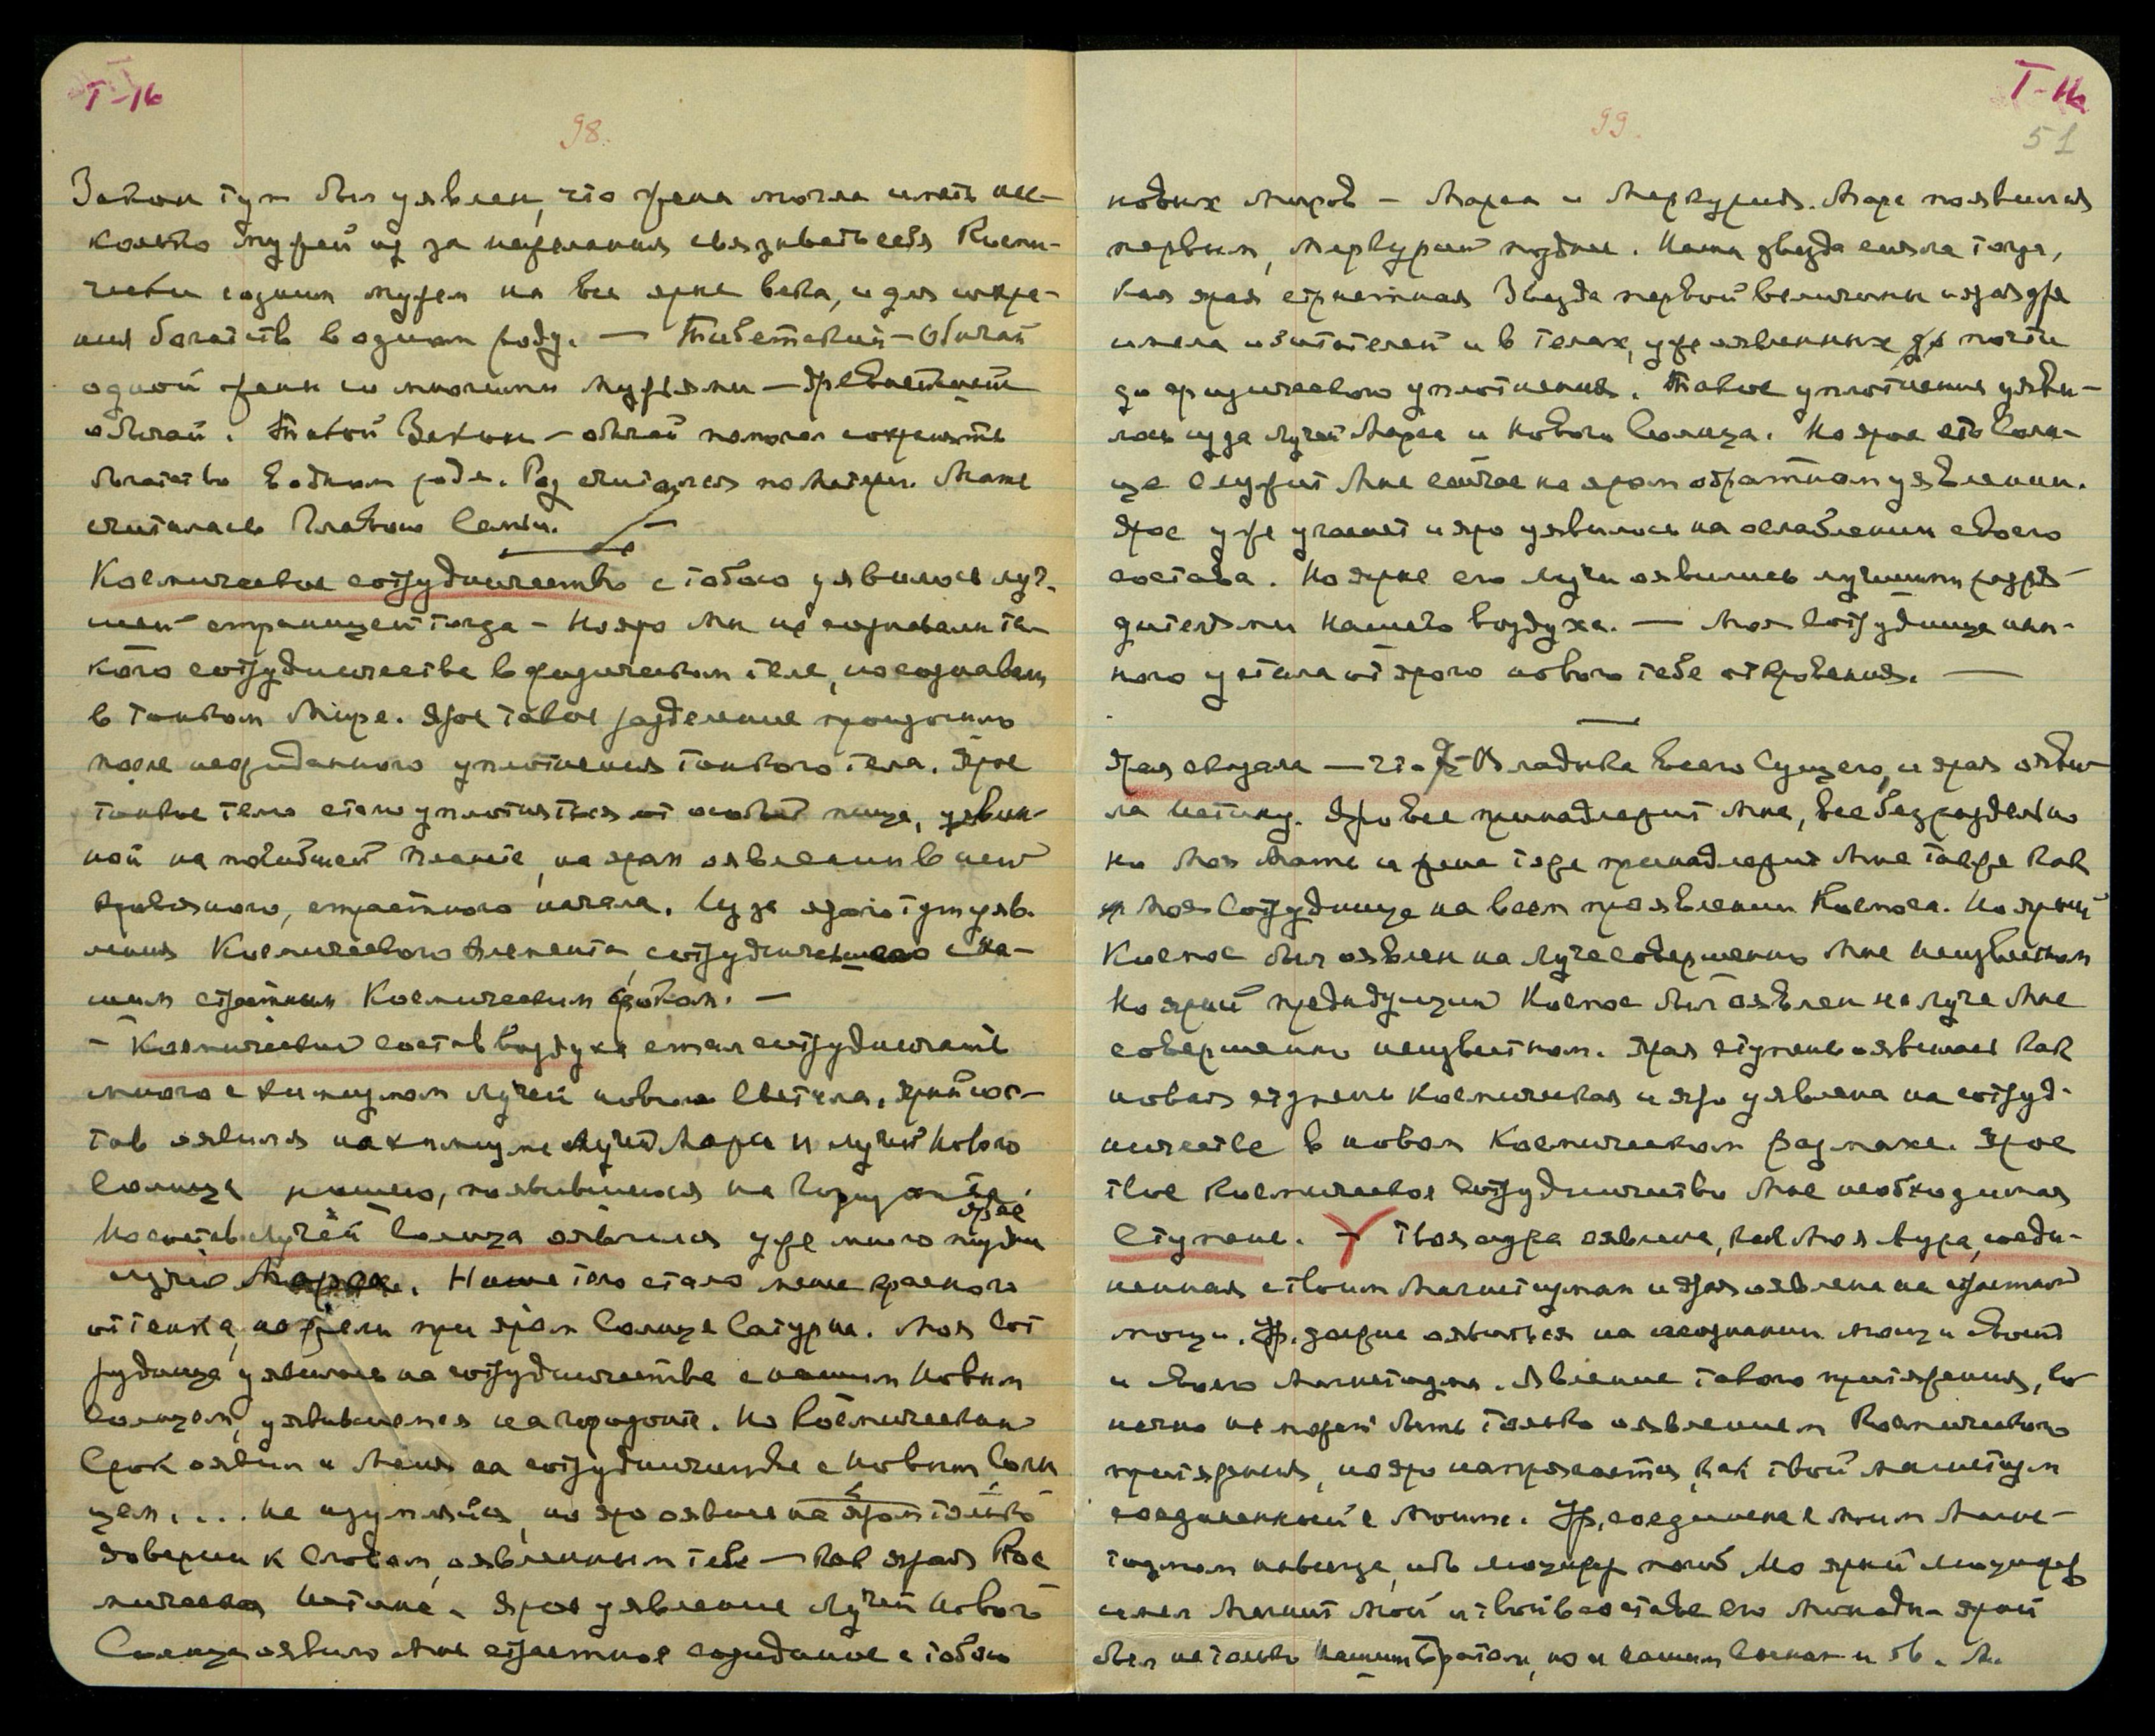 T-16
98.
Закон тут был уявлен, что жена могла иметь нес-
колько мужей из за нежелания связывать себя Косми-
чески с одним мужем на все ярые века, и для сохра-
ния богатств в одном роду. — Тибетский — Обычай
одной жены со многими мужьями — древнейший
обычай. Такой Закон — обычай помогал сохранять
богатство в одном роде. Род считался по Матери. Мать
считалась Главою Семьи.
Космическое сотрудничество с тобою уявилось луч-
шей страницей тогда — Но яро Мы не сознавали та-
кого сотрудничества в физическом теле, но сознавали
в тонком Мире. Ярое такое разделение произошло
после неожиданного уплотнения тонкого тела. Ярое
тонкое тело стало уплотняться от особой пищи, уявлен-
ной на погибшей планете, на яром оявлении в ней
кровяного, страстного начала. Из за ярого тут уяв-
ления Космического Элемента, сотрудничавшего с на-
шим страстным Космическим сроком. —
— Космический состав воздуха стал сотрудничать
много с химизмом лучей нового Светила. Ярый сос-
тав оявился на химизме лучей Марса и лучей Нового
Солнца нашего, появившегося на Горизонте.
Но состав лучей Солнца оявился уже много позднее
ярое
лучей Марса. Наше тело стало менее красного
оттенка, нежели при яром Солнце Сатурна. Моя Сот
рудница уявилась на сотрудничестве с нашим Новым
Солнцем, уявившемся на горизонте. Но Космический
Срок оявил и Меня на сотрудничестве с Новым Солн
цем. ... Не изумляйся, но яро оявись на яром только
доверии к Словам, оявленным тебе — как ярая Кос
мическая Истина. Ярое уявление Лучей Нового
Солнца оявило Мне страстное созидание с тобою
T-16
99.
51
новых миров — Марса и Меркурия. Марс появился
первым, Меркурий позднее. Наша звезда сияла тогда,
как ярая страстная Звезда первой величины и ярая уже
имела обитателей и в телах, уже оявленных почти
до физического уплотнения. Такое уплотнение уяви-
лось из за лучей Марса и Нового Солнца. Но ярое это Солн-
це служит Мне сейчас на яром обратном уявлении.
Ярое уже угасает и яро уявилось на ослаблении своего
состава. Но ярые его лучи оявились лучшими разря-
дителями нашего воздуха. — Моя Сотрудница нем-
ного устала от ярого нового тебе откровения. —
Ярая сказала — что Я — Владыка Всего Сущего, и ярая ояви-
ла Истину. Яро все принадлежит Мне, все безраздельно
но Моя Мать и жена тоже принадлежит Мне также как
и Моя Сотрудница на всем проявлении Космоса. Но ярый
Космос был оявлен на Луче совершенно Мне неизвестном
Но ярый предыдущий Космос был оявлен на луче Мне
совершенно неизвестном. Ярая ступень оявилась как
новая ступень Космическая и яро уявлена на сотруд-
ничестве в новом Космическом размахе. Ярое
твое Космическое Сотрудничество Мне необходимая
Ступень. Твоя аура оявлена, как Моя Аура, соеди-
ненная с твоим Магнетизмом и ярая оявлена на страстной
мощи. Ур. должна оявиться на осознании мощи Своей
и Своего Магнетизма. Явление такого притяжения, ко-
нечно не может быть только оявлением Космического
притяжения, но яро напрягается, как твой магнетизм
соединенный с Моим. Ур. соединена с Моим Магне-
тизмом навсегда, ибо Люцифер погиб. Но ярый Люцифер
имел Магнит Мой и твой в составе его Монады — ярый
был не только Нашим Братом, но и нашим Сыном и об. М.